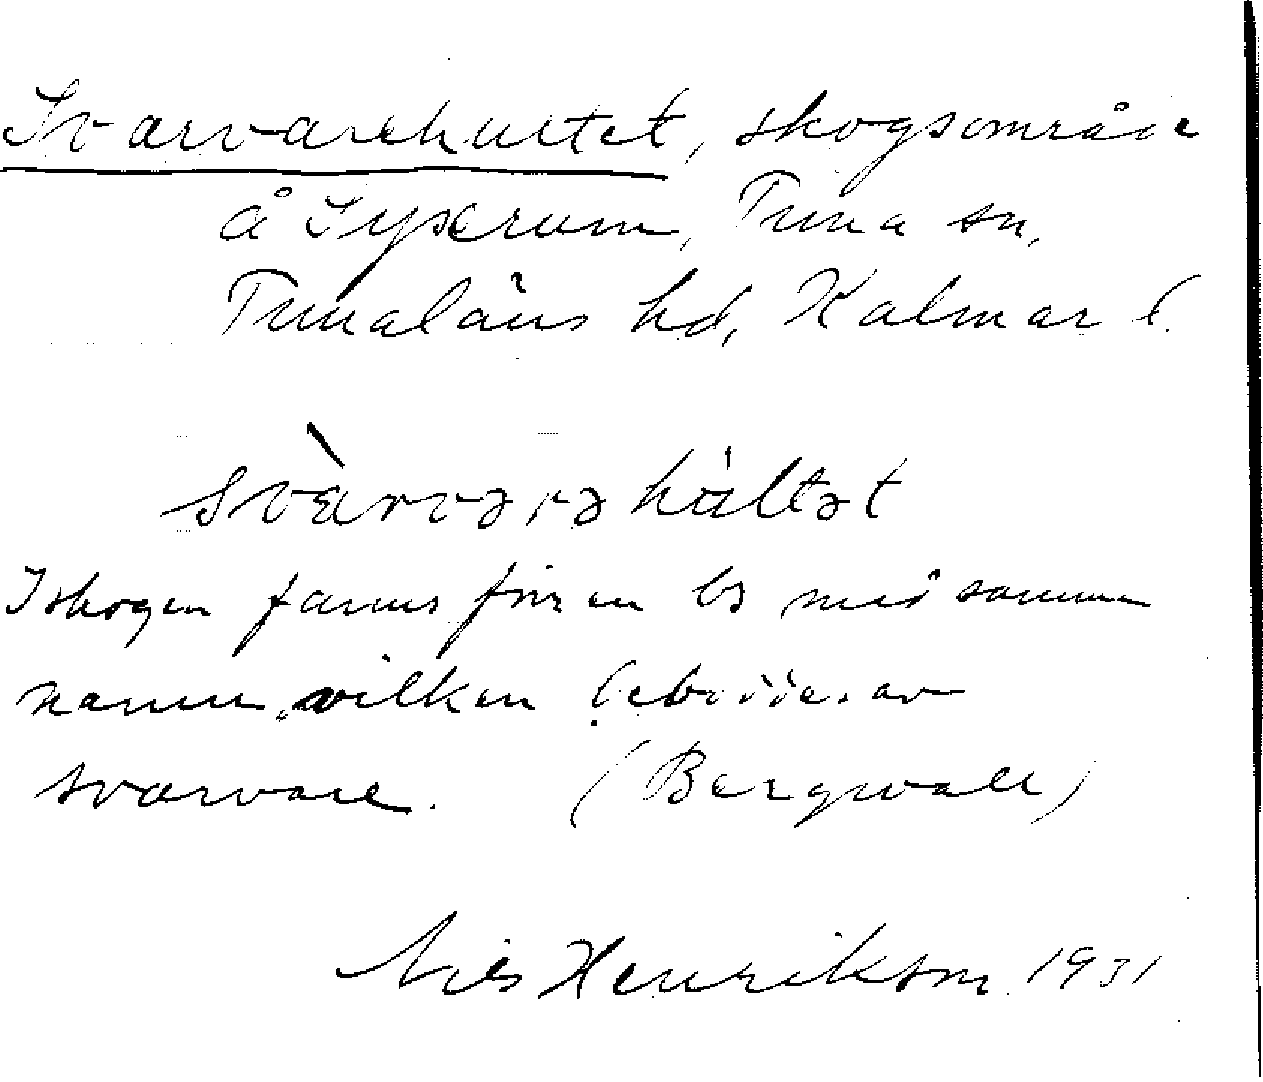 Svarvarehultet, skogsområde
å Syserum, Tuna sn,
Tunaläns hd, Kalmar l.
svàrvərəhúltət
I skogen fanns förr en ls med samma
namn, vilken beboddes av
svarvare. (Bergwall)
Nils Henrikson 1931